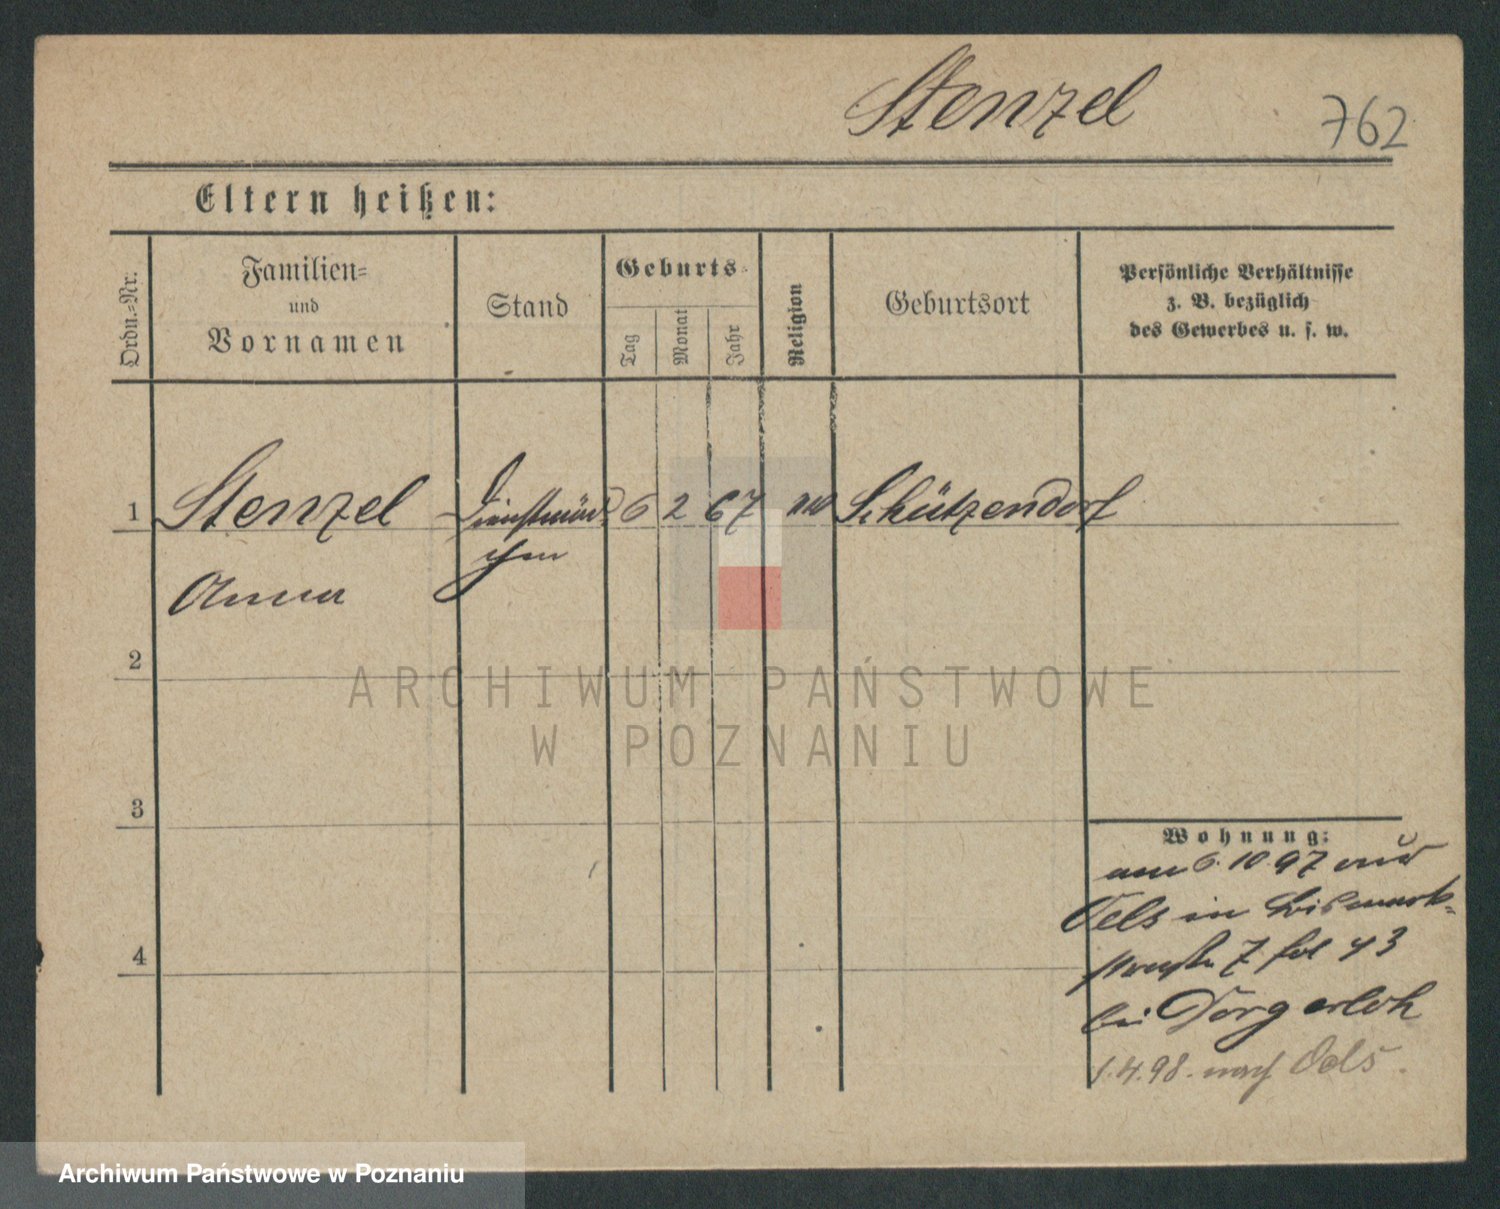 Stenzel 762
Eltern heißen:
Ordn.-Nr.
Familien-
und
Vornamen
Stand
Geburts-
Tag
Monat
Jahr
Religion
Geburtsort
Persönliche Verhältnisse
z. B. bezüglich
des Gewerbes u. s. w.
1 Stenzel Dienstmäd 6 2 67 Schützendorf
chen
Anna
2
3
4
ARCHIWUM PAŃSTWOWE
W POZNANIU
Wohnung:
am 6.10.97 aus
Oels in Bismark-
straße 7 bei
bei Torgerloh
1.4.98. nach Oels.
Archiwum Państwowe w Poznaniu